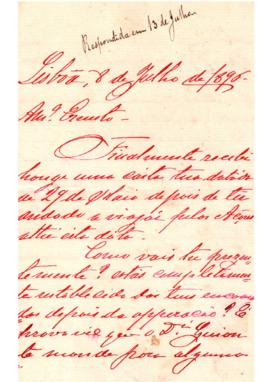 Respondida em 13 de Julho
Lisbôa, 8 de Julho de 1896
Am.º Ernesto-
Finalmente recebi
hon ge uma carta tua datada
de 29 de Maio depois de ter
andado a viajar pelos Açores
athé esta data.
Como vais tu prezen
temente? estás completamen
te restabelecido dos teus encom
dos depois da opperação? É
provavel que o Dr.
te mande por algum